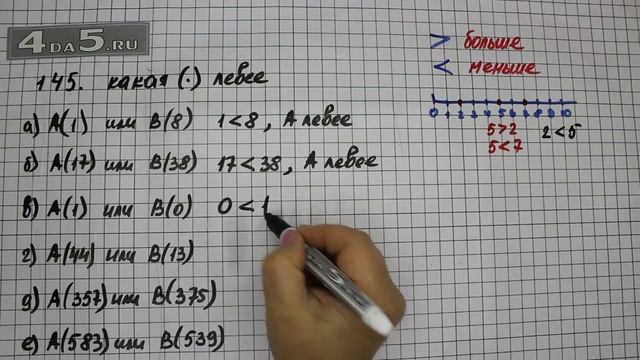 4DA5.RU
145. какая (·) левее
а) A(1) или B(8) 1 < 8, A левее
б) A(17) или B(38) 17 < 38, A левее
в) A(1) или B(0) 0 < 1
г) A(44) или B(13)
д) A(357) или B(375)
е) A(583) или B(539)
> больше
< меньше
0 1 2 3 4 5 6 7 8 9 10
5 > 2 2 < 5
5 < 7